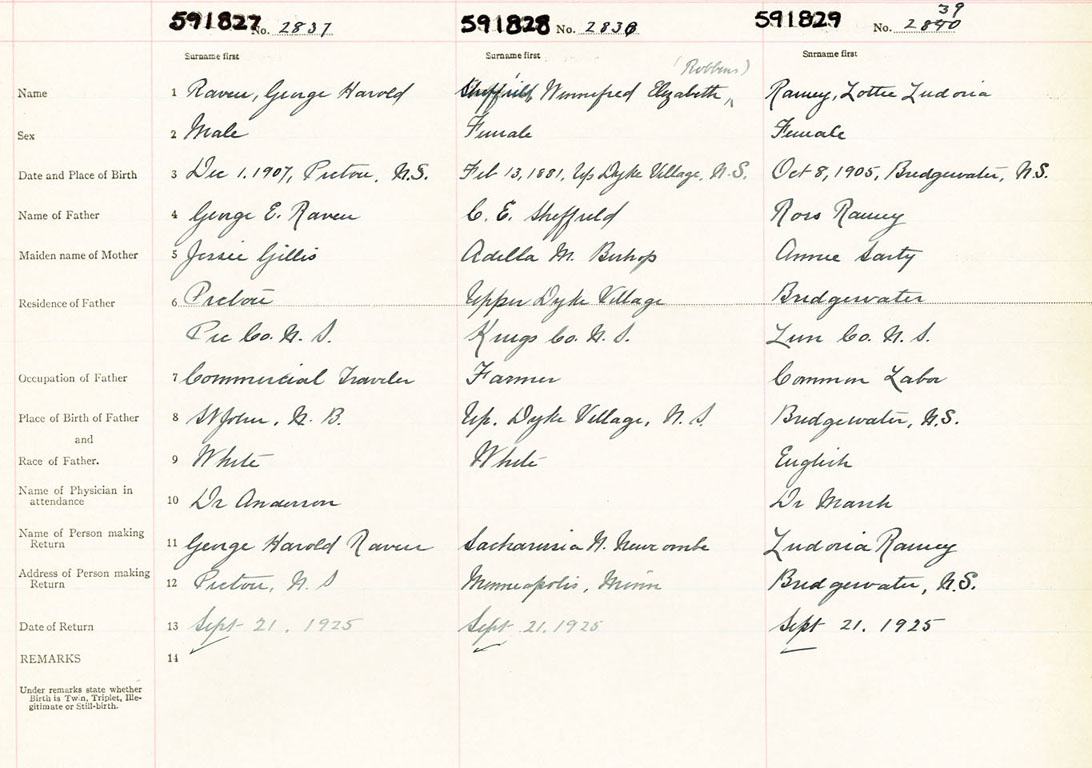 591827 No. 2837 591828 No. 2838 591829 No. 2840 39
Surname first Surname first Surname first
(Robbins)
Name 1 Raven, George Harold Sheffield, Winnifred Elizabeth Ramey, Lottie Ludoria
Sex 2 Male Female Female
Date and Place of Birth 3 Dec 1. 1907, Pictou, N.S. Feb 13, 1881, Up Dyke Village, N.S. Oct 8, 1905, Bridgewater, N.S.
Name of Father 4 George E. Raven C. E. Sheffield Ross Ramey
Maiden name of Mother 5 Jessie Gillis Adella M. Bishop Annie Sarty
Residence of Father 6 Pictou Upper Dyke Village Bridgewater
Pic Co. N. S. Kings Co. N. S. Lun Co. N. S.
Occupation of Father 7 Commercial Traveler Farmer Common Labor
Place of Birth of Father 8 St John, N. B. Up. Dyke Village, N. S. Bridgewater, N.S.
and
Race of Father. 9 White White English
Name of Physician in
attendance 10 Dr Anderson Dr Marsh
Name of Person making
Return 11 George Harold Raven N. Newcombe Ludoria Ramey
Address of Person making
Return 12 Pictou, N. S Minneapolis, Minn Bridgewater, N.S.
Date of Return 13 Sept 21. 1925 Sept 21. 1925 Sept 21. 1925
REMARKS 14
Under remarks state whether
Birth is Twin, Triplet, Ille-
gitimate or Still-birth.